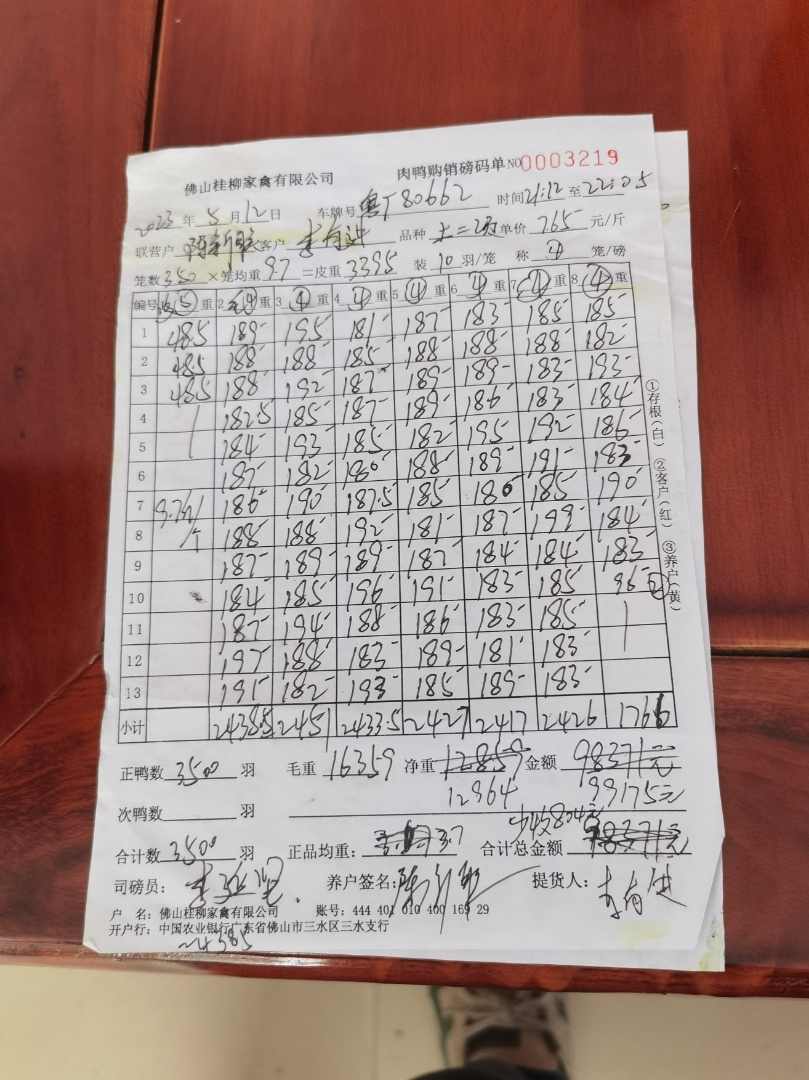 佛山桂柳家禽有限公司 肉鸭购销磅码单 NO 0003219
2023 年 5 月 12 日 车牌号 粤T80662 时间 21:12 至 22:05
联营户 客户 品种 土二 单价 7.65 元/斤
笼数 350 ×笼均重 9.7 =皮重 3395 装 10 羽/笼 称 4 笼/磅
编号 ⑤ 重 2 ④ 重 3 ④ 重 4 ④ 重 5 ④ 重 6 ④ 重 7 ④ 重 8 ④ 重
1 48.5 189 195 181 187 183 185 185
2 48.5 188 188 185 188 188 188 182
3 48.5 188 192 187 189 189 183 193
4 182.5 185 187 189 186 183 184
5 184 193 185 182 195 192 186
6 187 182 180 188 189 191 183
7 9.7 186 190 187.5 185 180 185 190
8 188 188 192 181 187 199 184
9 187 189 189 187 184 184 183
10 184 185 196 191 183 185 96 ②
11 187 194 188 186 183 185
12 197 188 183 189 181 183
13 191 182 193 185 189 183
小计 2438.5 2451 2433.5 2427 2417 2426 1766
正鸭数 3500 羽 毛重 16359 净重 12859 金额 98371元
12964 99175元
次鸭数 羽
合计数 3500 羽 正品均重: 3.7 合计总金额 98371元
司磅员: 养户签名: 提货人:
户 名: 佛山桂柳家禽有限公司 账号: 444 401 010 400 169 29
开户行: 中国农业银行广东省佛山市三水区三水支行
①存根(白) ②客户(红) ③养户(黄)